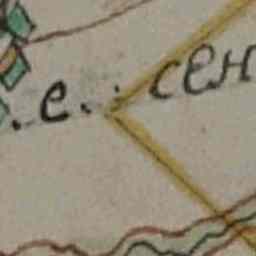 .е.: сен